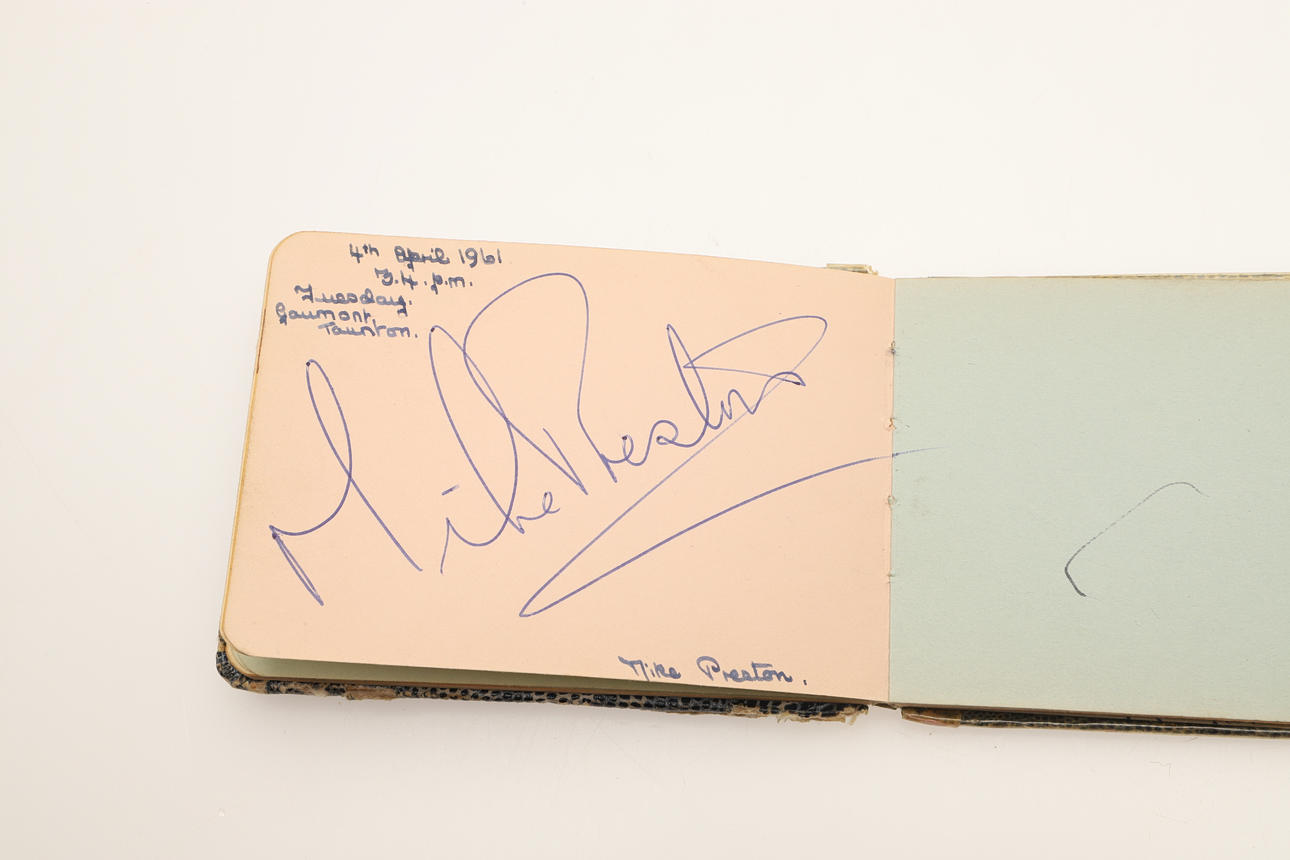 4th April 1961
7.4. p.m.
Tuesday.
Gaumont,
Taunton.
Mike Preston
Mike Preston.